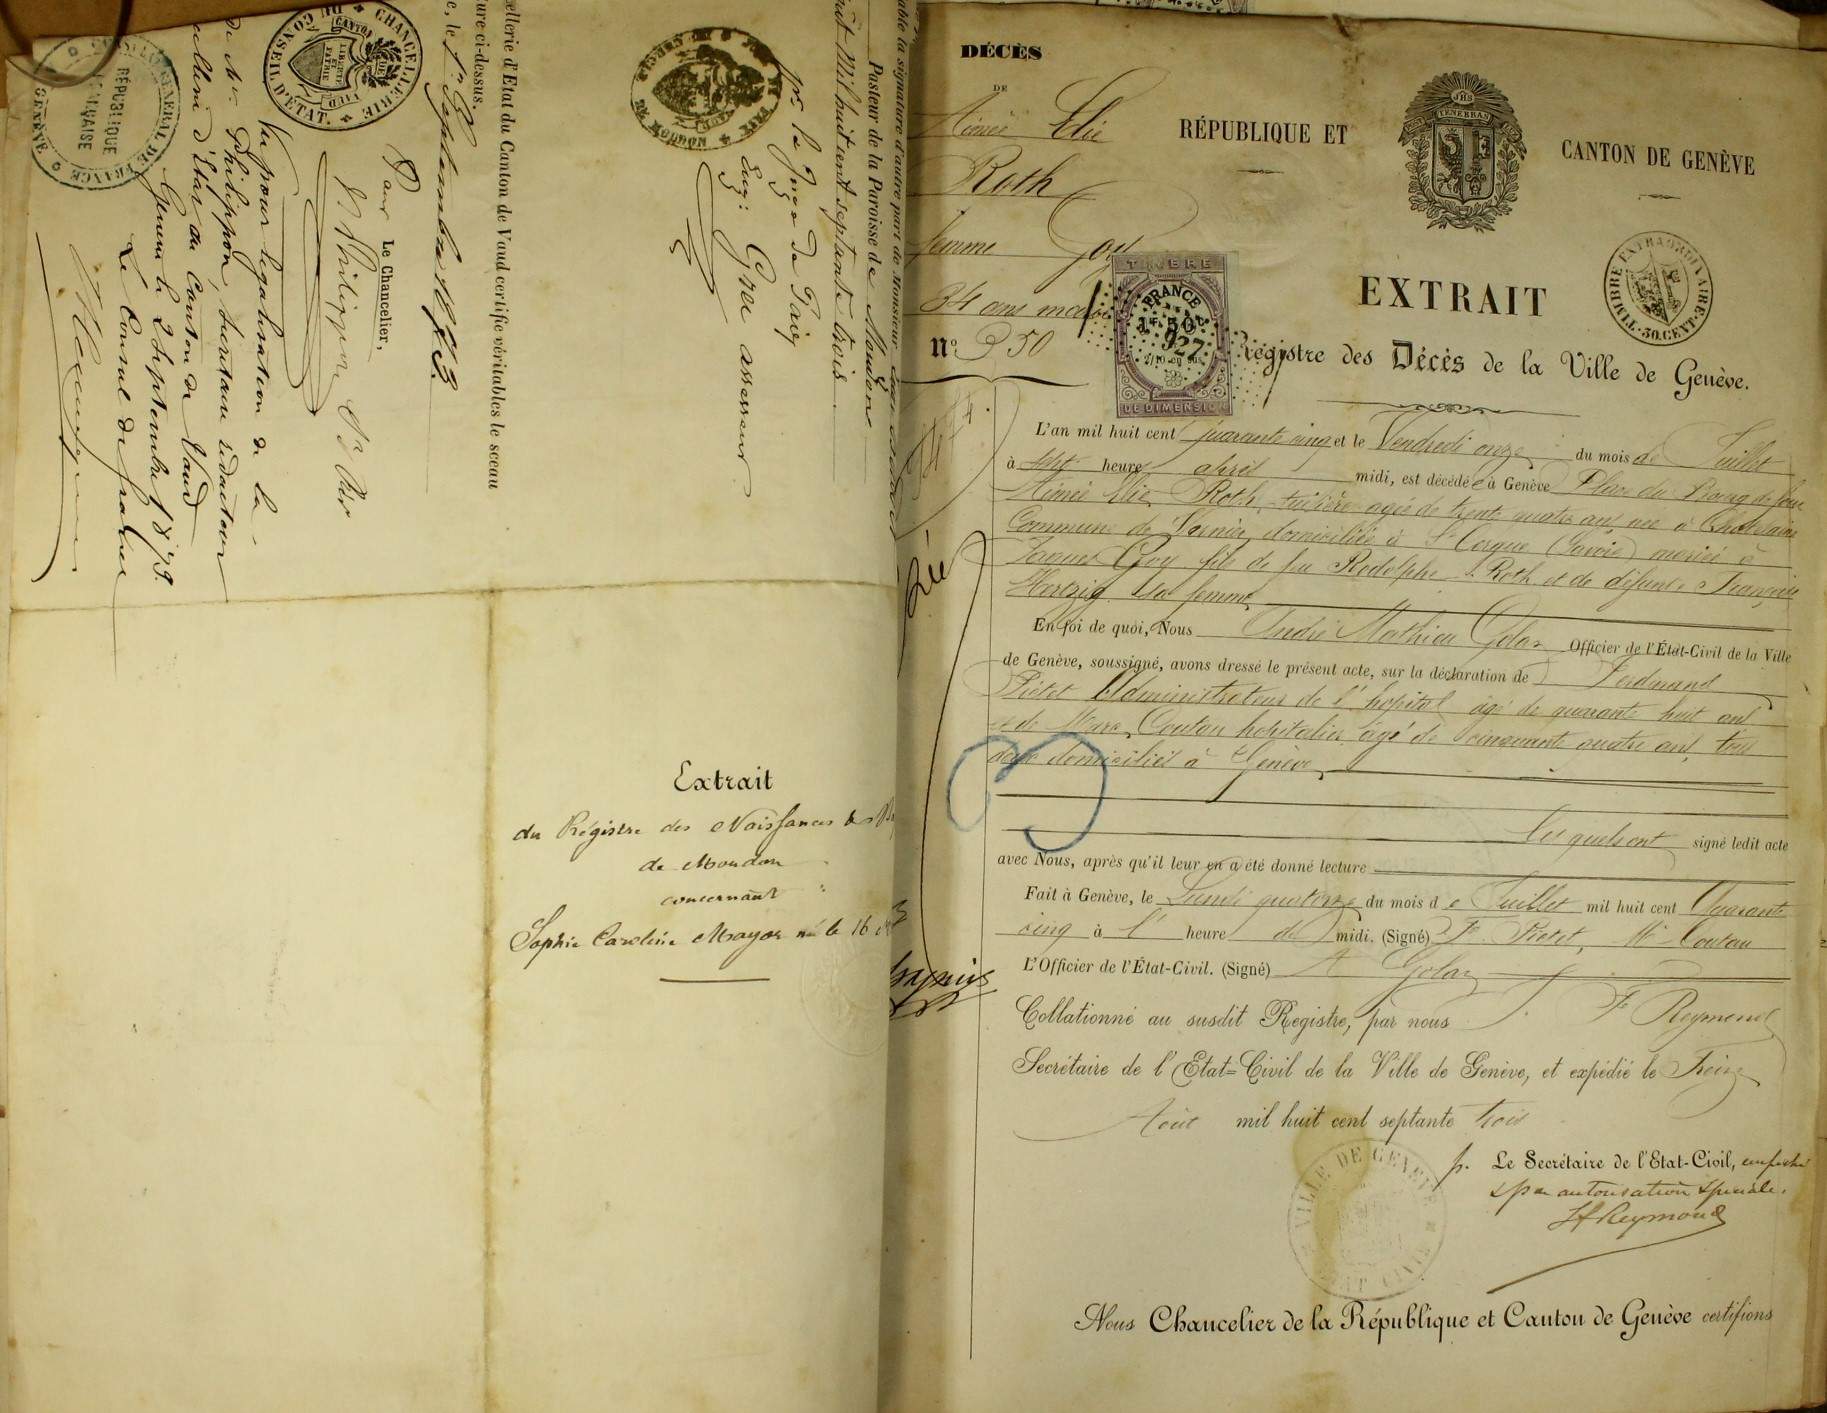 DÉCÈS
DE
Aimée Elie
Roth
femme Goy
34 ans mariée
N° 350
RÉPUBLIQUE ET
CANTON DE GENÈVE
POST TENEBRAS LUX
JHS
EXTRAIT
TIMBRE EXTRAORDINAIRE
50. CENT.
TIMBRE
FRANCE
1F 50
927
DE DIMENSION
Régistre des Décès de la Ville de Genève.
L'an mil huit cent quarante cinq et le Vendredi onze du mois de Juillet
à sept heures après midi, est décédée à Genève Place du Bourg de four
Aimée Elie Roth, tuilière agée de trente quatre ans, née à Chatelaine
Commune de Vernier domiciliée à St Cergue (Savoie) mariée à
Jaques Goy fille de feu Rodolphe Roth et de défunte Françoise
Hertzig sa femme
En foi de quoi, Nous André Mathieu Golaz Officier de l'État-Civil de la Ville
de Genève, soussigné, avons dressé le présent acte, sur la déclaration de Ferdinand
Pictet Administrateur de l'hopital âgé de quarante huit ans
et de Marc Coutau hopitalier âgé de cinquante quatre ans, tous
deux domiciliés à Genève
Lesquels ont signé ledit acte
avec Nous, après qu'il leur en a été donné lecture
Fait à Genève, le Lundi quatorze du mois de Juillet mil huit cent Quarante
cinq à heure de midi. (Signé) F. Pictet, M. Coutau
L'Officier de l'État-Civil. (Signé) A Golaz
Collationné au susdit Registre, par nous F Reymond
Secrétaire de l'Etat=Civil de la Ville de Genève, et expédié le Treize
Août mil huit cent septante trois
p. Le Secrétaire de l'Etat-Civil, empêché
autorisation spéciale.
Reymond
VILLE DE GENÈVE
ETAT CIVIL
Nous Chancelier de la République et Canton de Genève certifions
Extrait
du Régistre des Naissances
de Moudon
concernant
Sophie Caroline Mayor née le 16
able la signature d'autre part de Monsieur
Pasteur de la Paroisse de Moudon
Mil huit cent septante trois
pr le Juge de Paix
assesseur
DE MOUDON
ellerie d'Etat du Canton de Vaud certifie véritables le sceau
ure ci-dessus.
c, le 1r Septembre 1873.
Pour Le Chancelier,
Philippon
CHANCELLERIE
DU CONSEIL D'ETAT.
CANTON DE VAUD
LIBERTÉ ET PATRIE
Vu pour légalisation de la
de Mr Philippon, Secrétaire rédacteur
d'État du Canton de Vaud
Genève le 2 Septembre 1873.
Le Consul de France
CONSULAT GÉNÉRAL DE FRANCE
RÉPUBLIQUE
FRANÇAISE
GENÈVE